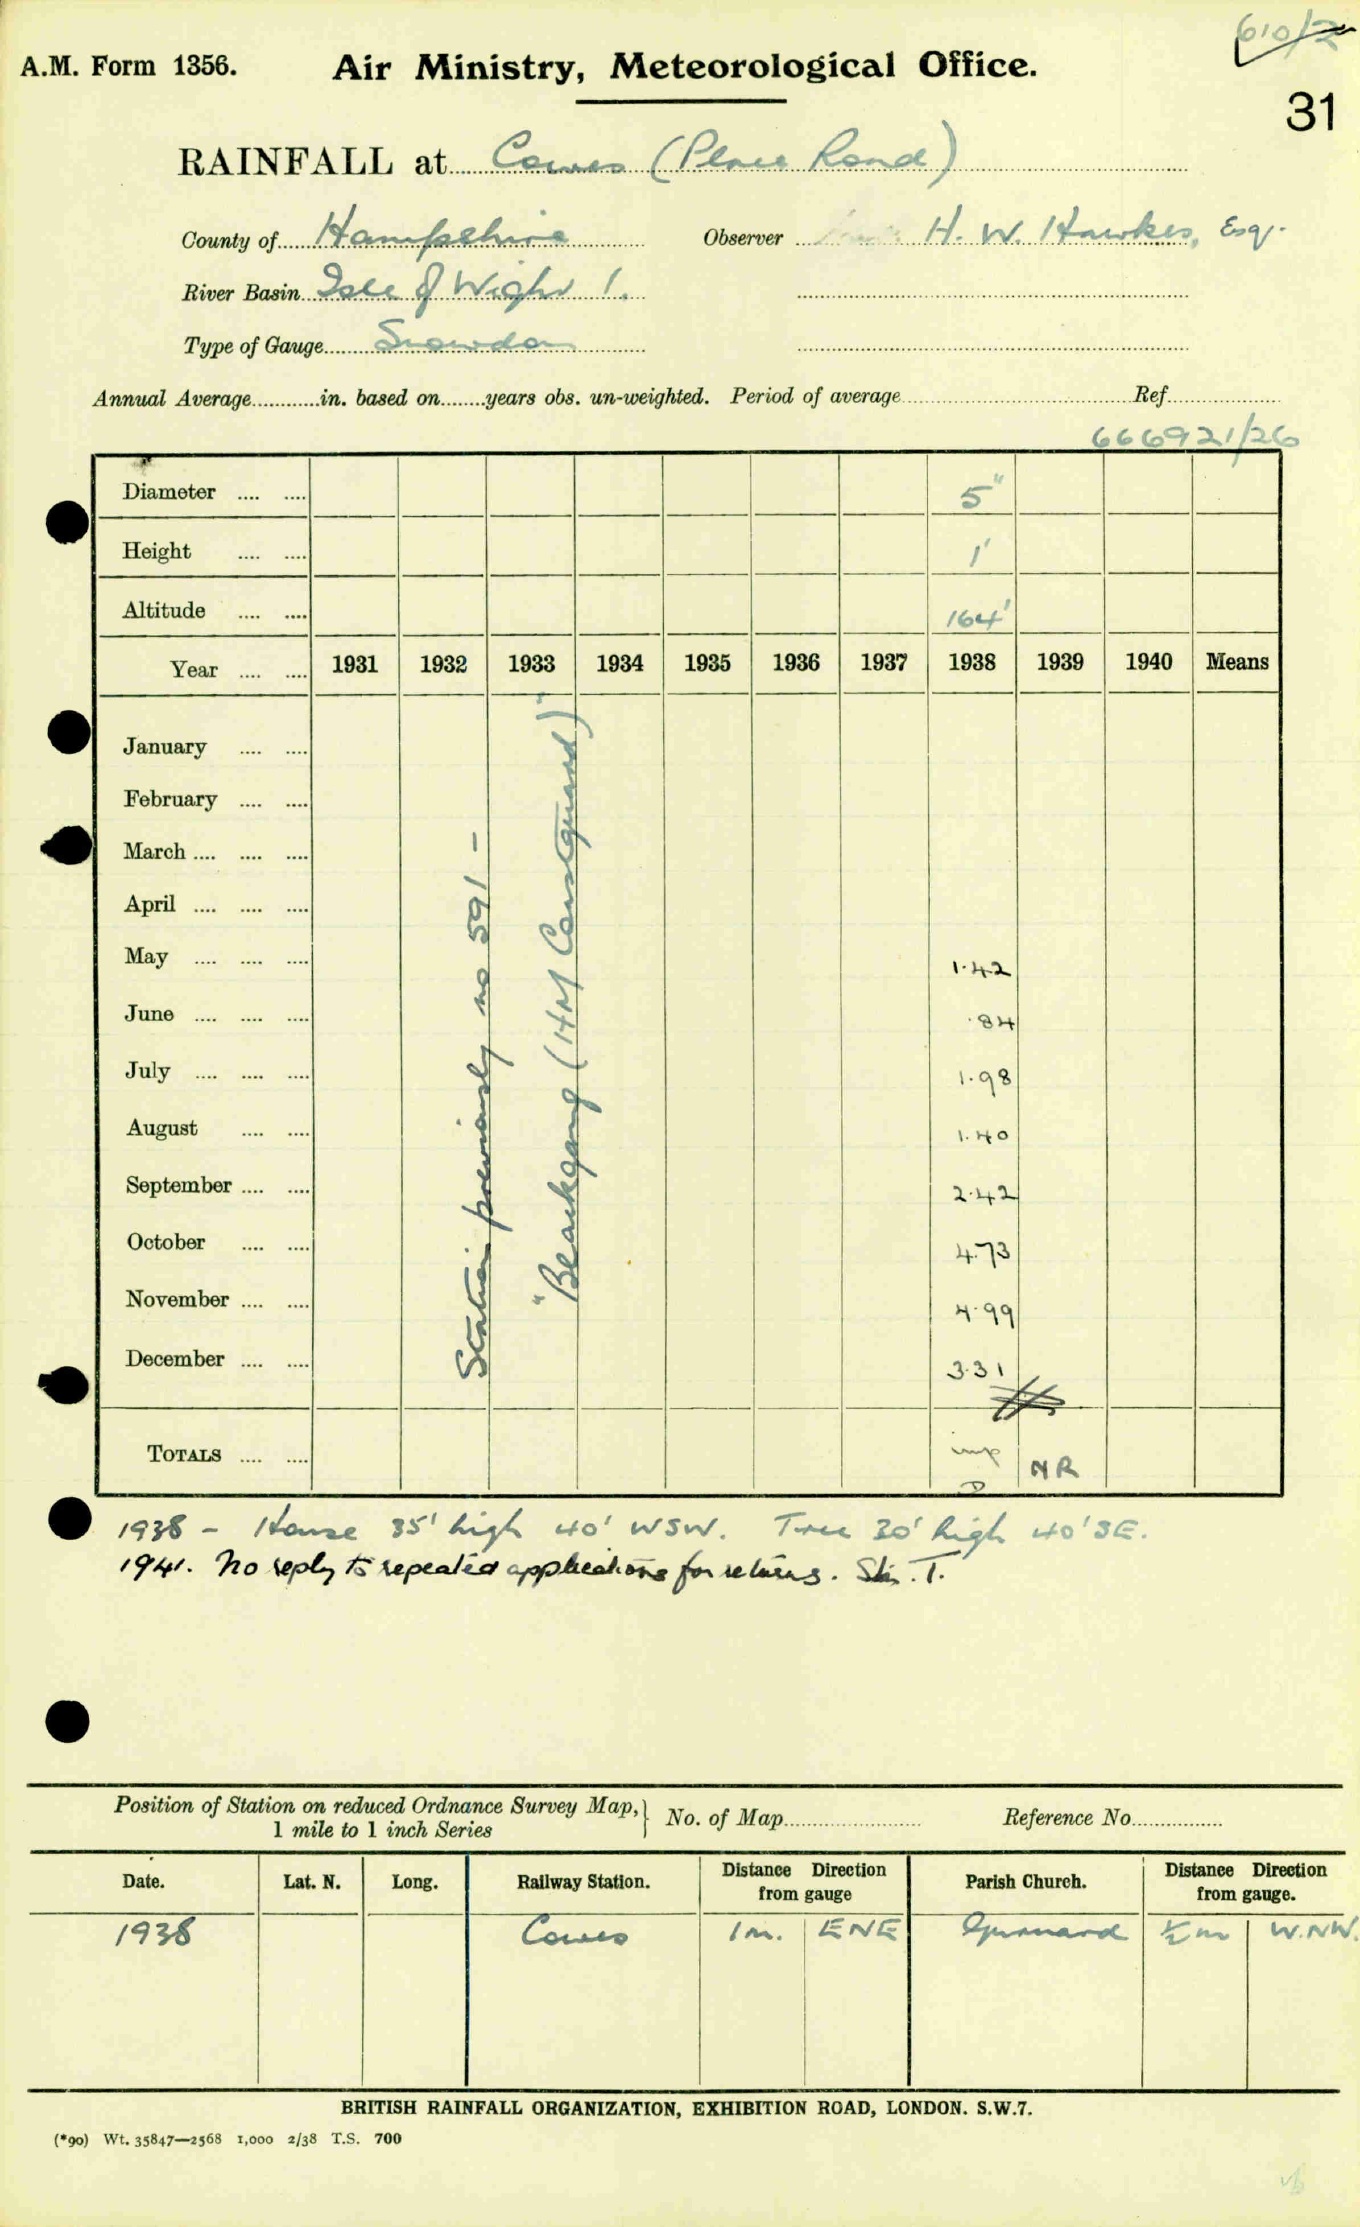 610/2
A.M. Form 1356. Air Ministry, Meteorological Office.
31
RAINFALL at Cowes (Place Road)
County of Hampshire Observer H. W. Hawkes, Esq.
River Basin Isle of Wight 1.
Type of Gauge Snowdon
Annual Average in. based on years obs. un-weighted. Period of average Ref
666921/26
Diameter 5"
Height 1'
Altitude 164'
Year 1931 1932 1933 1934 1935 1936 1937 1938 1939 1940 Means
January
February
March
April
May 1.42
June .84
July 1.98
August 1.40
September 2.42
October 4.73
November 4.99
December 3.31
TOTALS imp NR
Station previously no 591 -
"Blackgang (HM Coastguard)"
1938 - House 35' high 40' WSW. Tree 30' high 40' SE.
1941. No reply to repeated applications for returns. Stn. T.
Position of Station on reduced Ordnance Survey Map, No. of Map Reference No.
1 mile to 1 inch Series
Date. Lat. N. Long. Railway Station. Distance Direction from gauge Parish Church. Distance Direction from gauge.
1938 Cowes 1m. ENE Gurnard ½m W.NW.
BRITISH RAINFALL ORGANIZATION, EXHIBITION ROAD, LONDON. S.W.7.
(*90) Wt. 35847—2568 1,000 2/38 T.S. 700